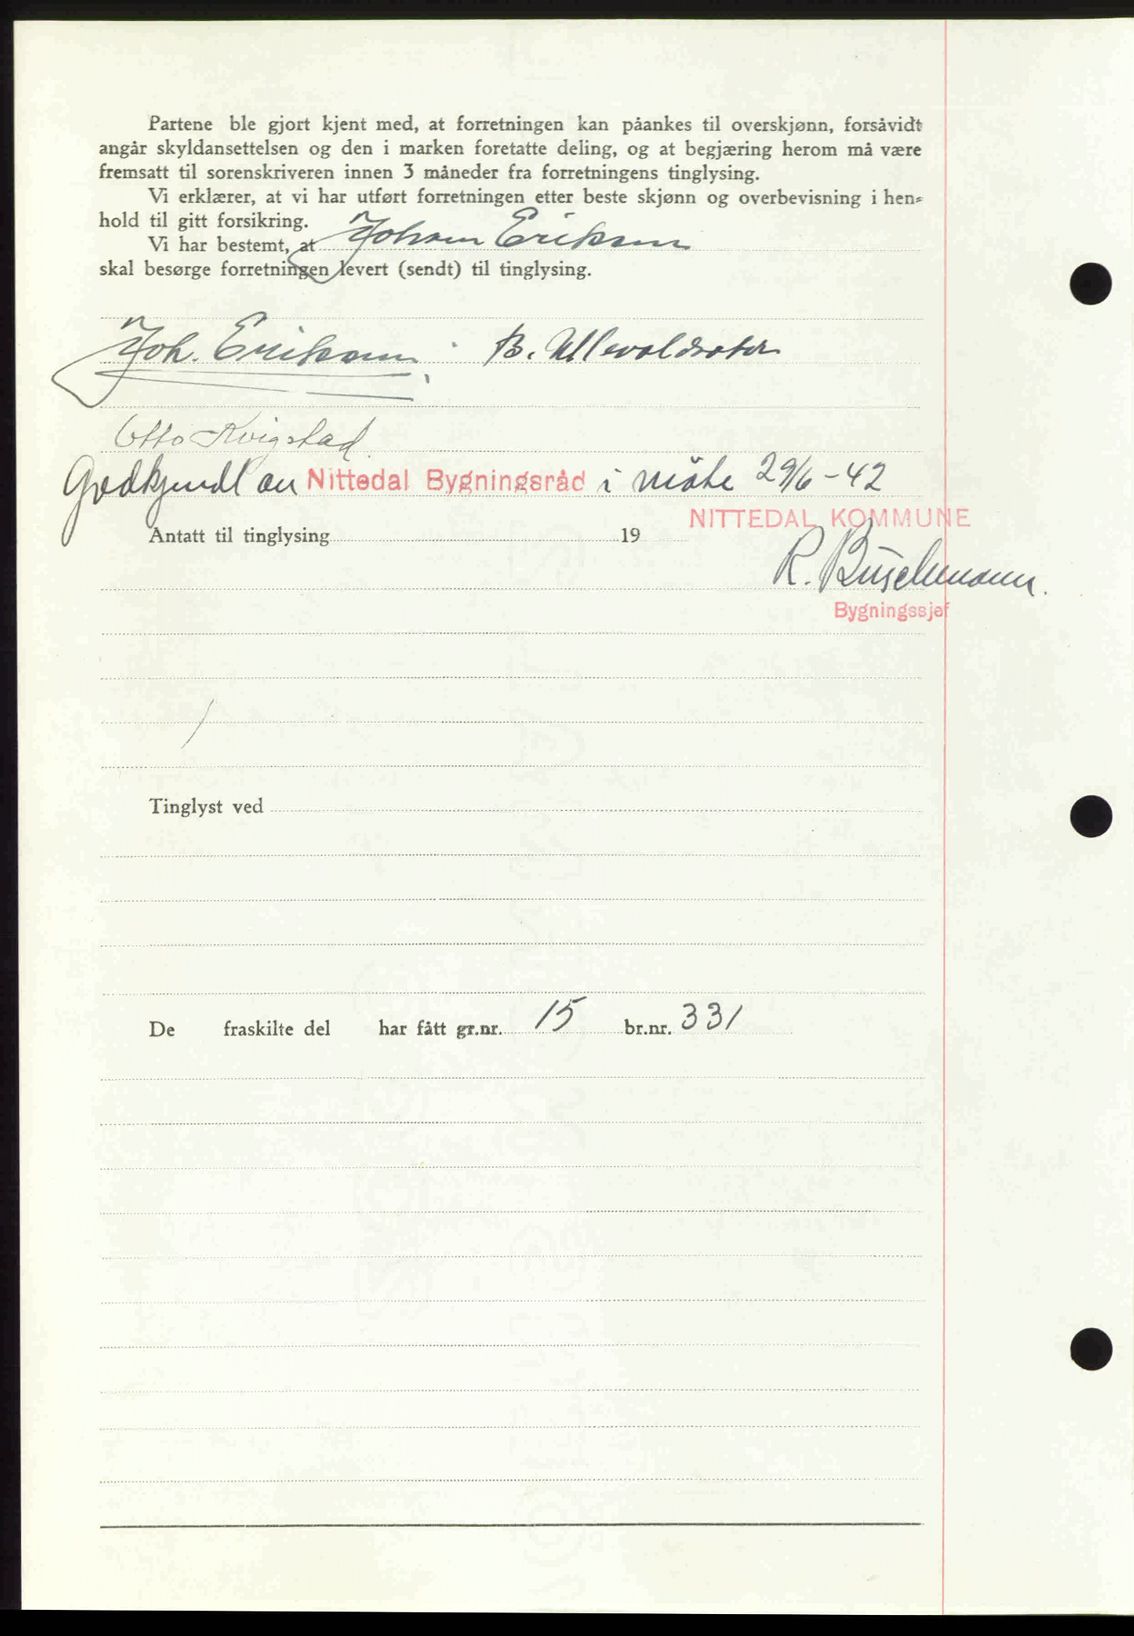 Partene ble gjort kjent med, at forretningen kan påankes til overskjønn, forsåvidt
angår skyldansettelsen og den i marken foretatte deling, og at begjæring herom må være
fremsatt til sorenskriveren innen 3 måneder fra forretningens tinglysing.
Vi erklærer, at vi har utført forretningen etter beste skjønn og overbevisning i hen-
hold til gitt forsikring.
Vi har bestemt, at Johann Eriksen
skal besørge forretningen levert (sendt) til tinglysing.
Joh. Eriksen B.
Otto Kvigstad.
Godkjendt av Nittedal Bygningsråd i møte 29/6-42
NITTEDAL KOMMUNE
Antatt til tinglysing 19
R. Buschmann.
Bygningssjef
Tinglyst ved
De fraskilte del har fått gr.nr. 15 br.nr. 331